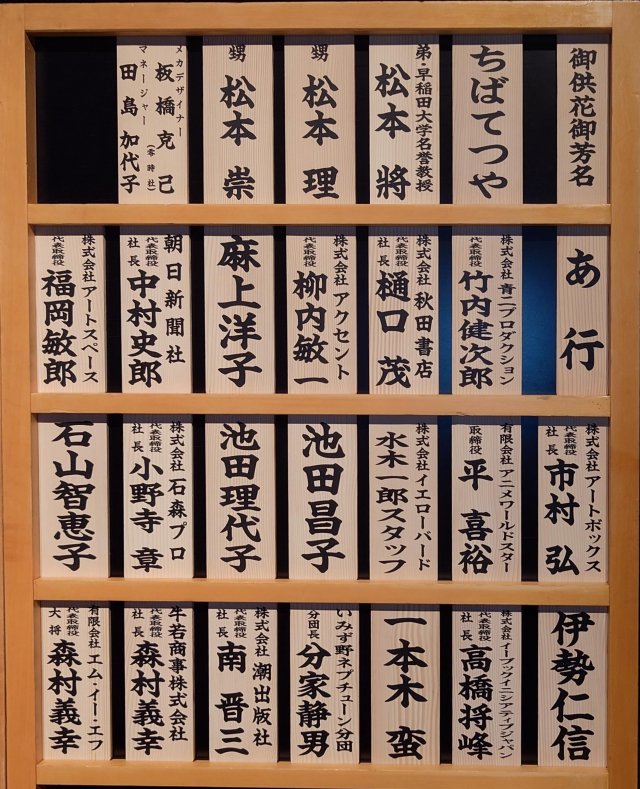 御供花御芳名
ちばてつや
弟・早稲田大学名誉教授
松本 將
甥
松本 理
甥
松本 崇
メカデザイナー
板橋克己
(零時社)
マネージャー
田島加代子
あ行
株式会社 青二プロダクション
代表取締役
竹内健次郎
株式会社 秋田書店
代表取締役
社長
樋口 茂
株式会社 アクセント
代表取締役
柳内敏一
麻上洋子
朝日新聞社
代表取締役
社長
中村史郎
株式会社 アートスペース
代表取締役
福岡敏郎
株式会社 アートボックス
代表取締役
社長
市村 弘
有限会社 アニメワールドスター
取締役
平 喜裕
株式会社 イエローバード
水木一郎スタッフ
池田昌子
池田理代子
株式会社 石森プロ
代表取締役
社長
小野寺 章
石山智恵子
伊勢仁信
株式会社 イーブックイニシアティブジャパン
代表取締役
社長
高橋将峰
一本木 蛮
いみず野ネプチューン分団
分団長
分家静男
株式会社 潮出版社
代表取締役
社長
南 晋三
牛若商事株式会社
代表取締役
社長
森村義幸
有限会社 エム・イー・エフ
代表取締役
大将
森村義幸